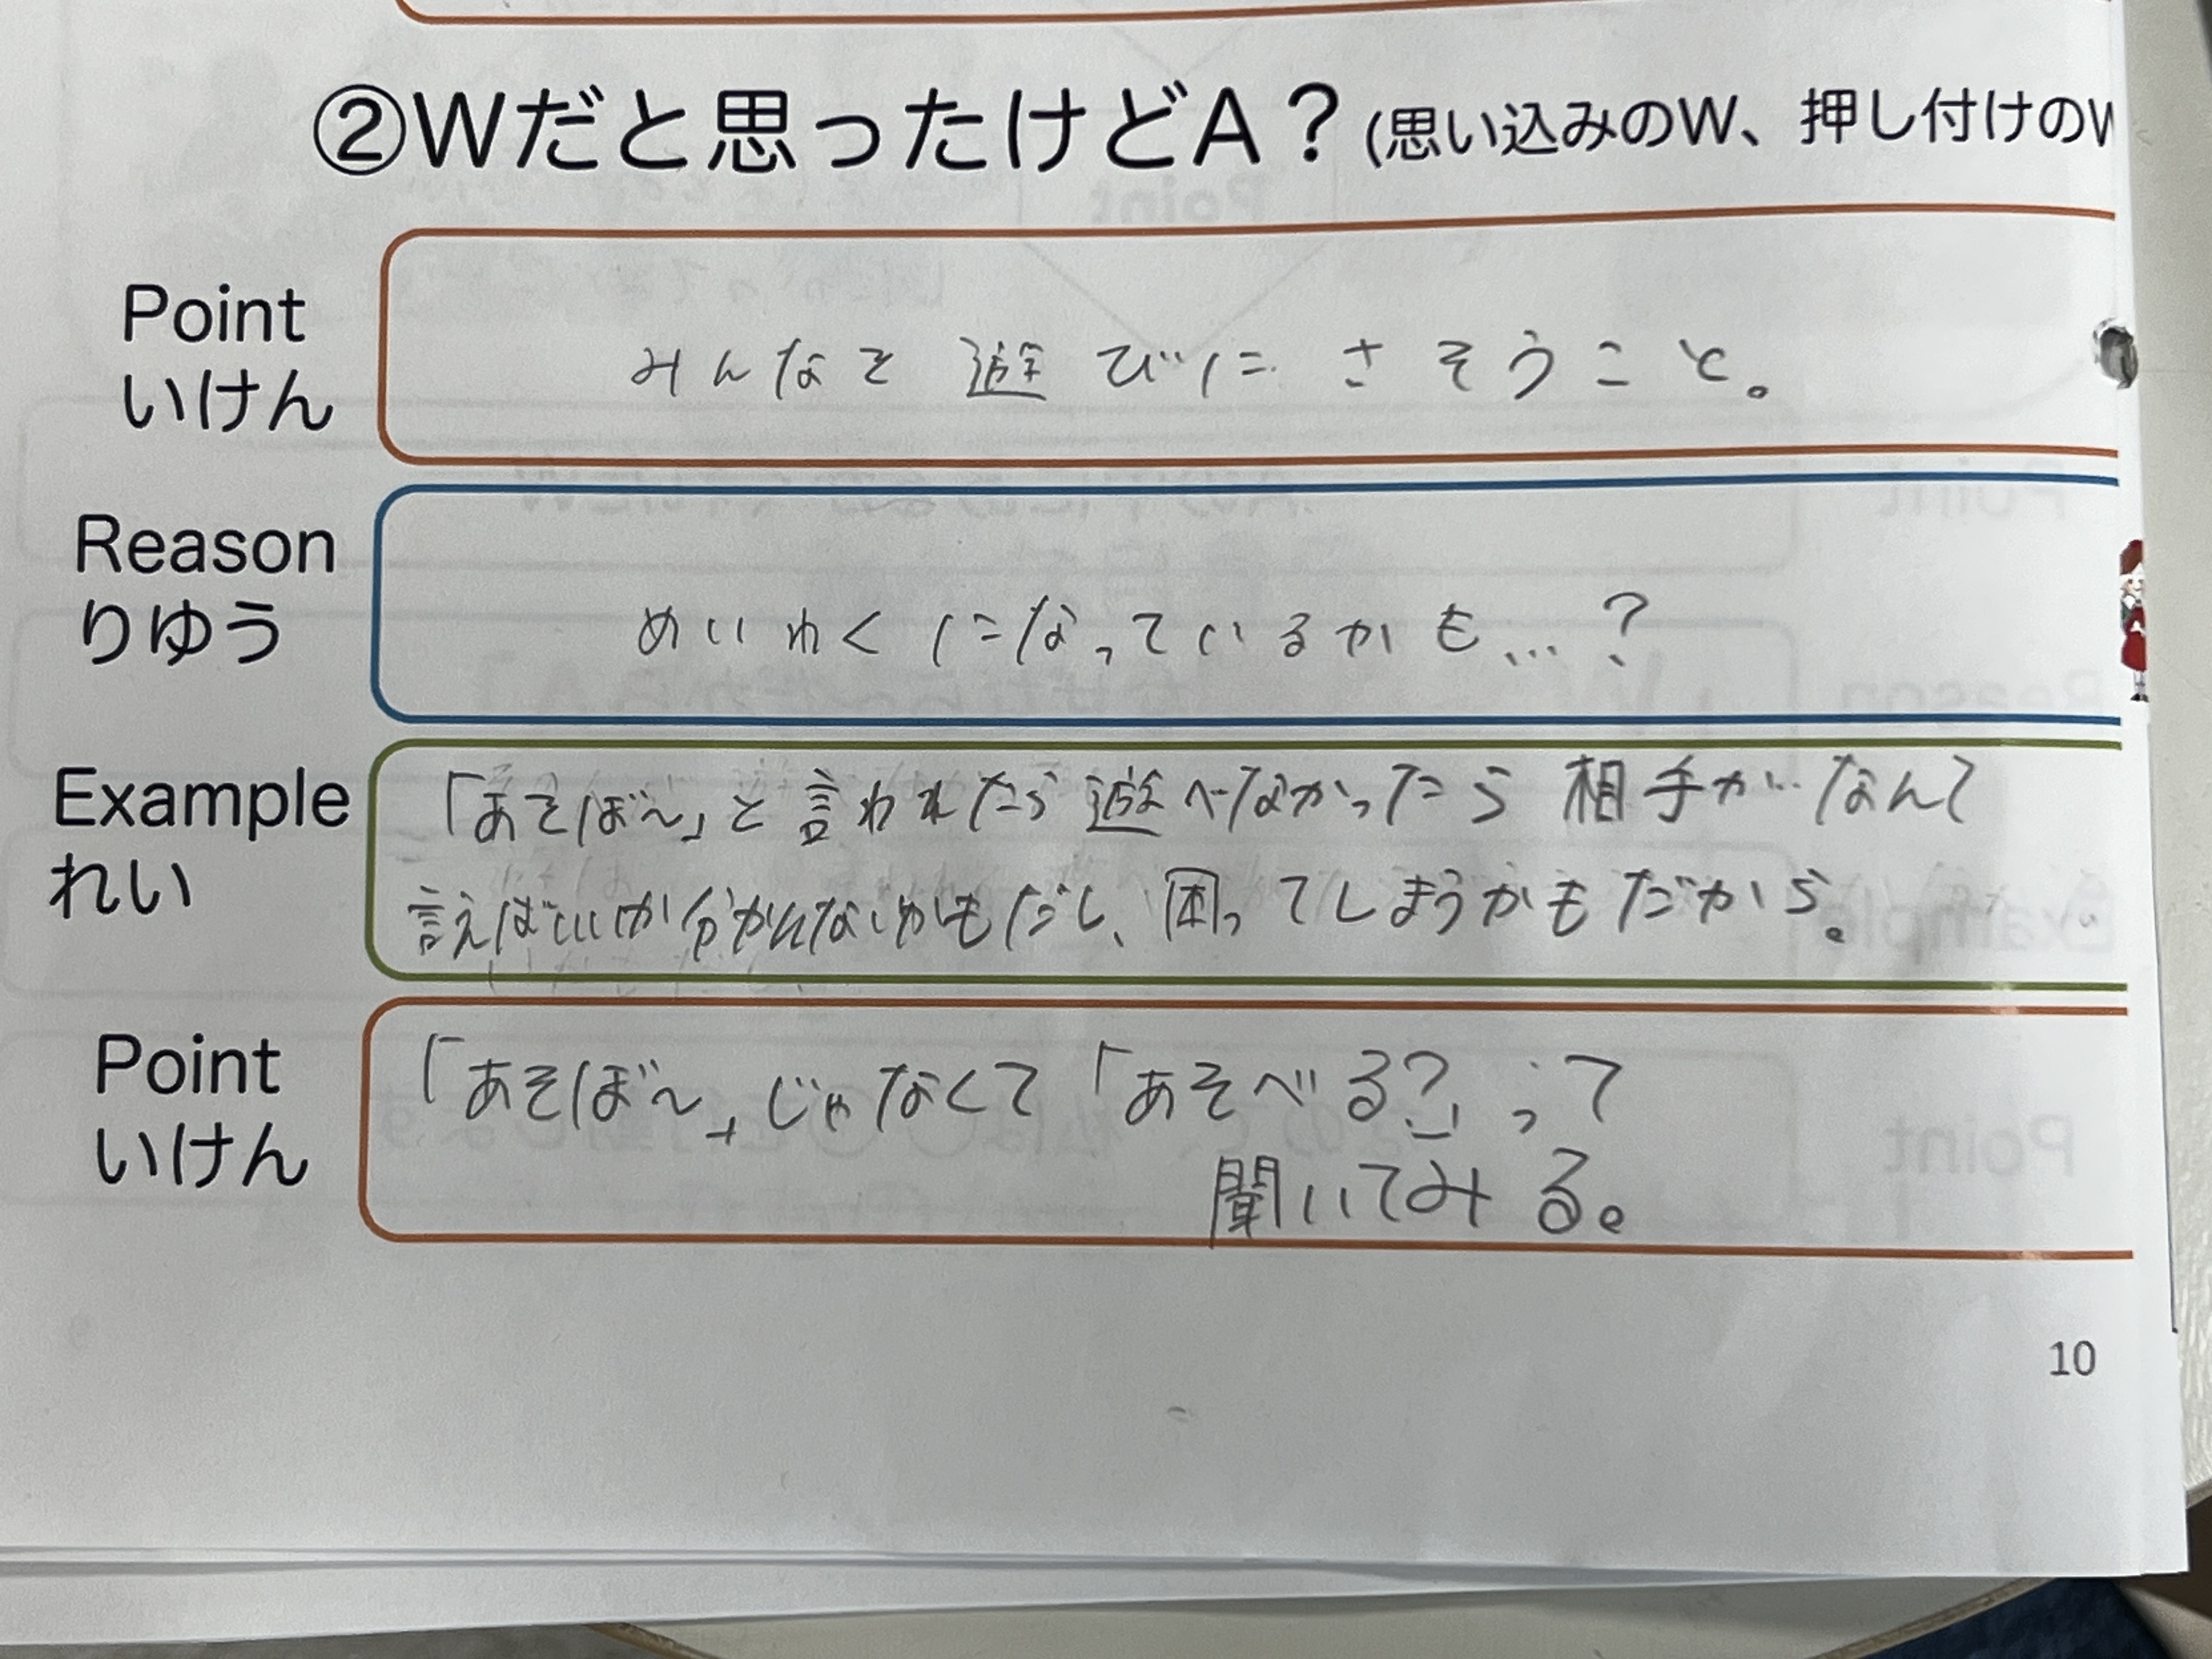 ②Wだと思ったけどA？(思い込みのW、押し付けのW
Point
いけん
みんなを遊びにさそうこと。
Reason
りゆう
めいわくになっているかも…?
Example
れい
「あそぼ〜」と言われたら遊べなかったら相手がなんて
言えばいいか分かんないかもだし、困ってしまうかもだから。
Point
いけん
「あそぼ〜」じゃなくて「あそべる?」って
聞いてみる。
10